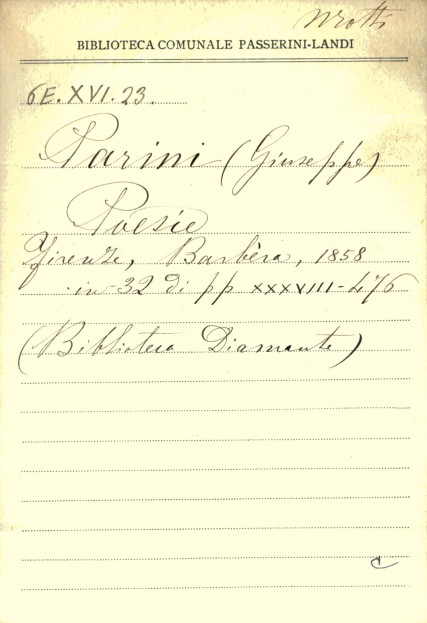 BIBLIOTECA COMUNALE PASSERINI-LANDI
6E.XVI.23.
Parini (Giuseppe)
Poesie
Firenze, Barbèra, 1858
in-32 di pp XXXVIII-476
(Biblioteca Diamante)